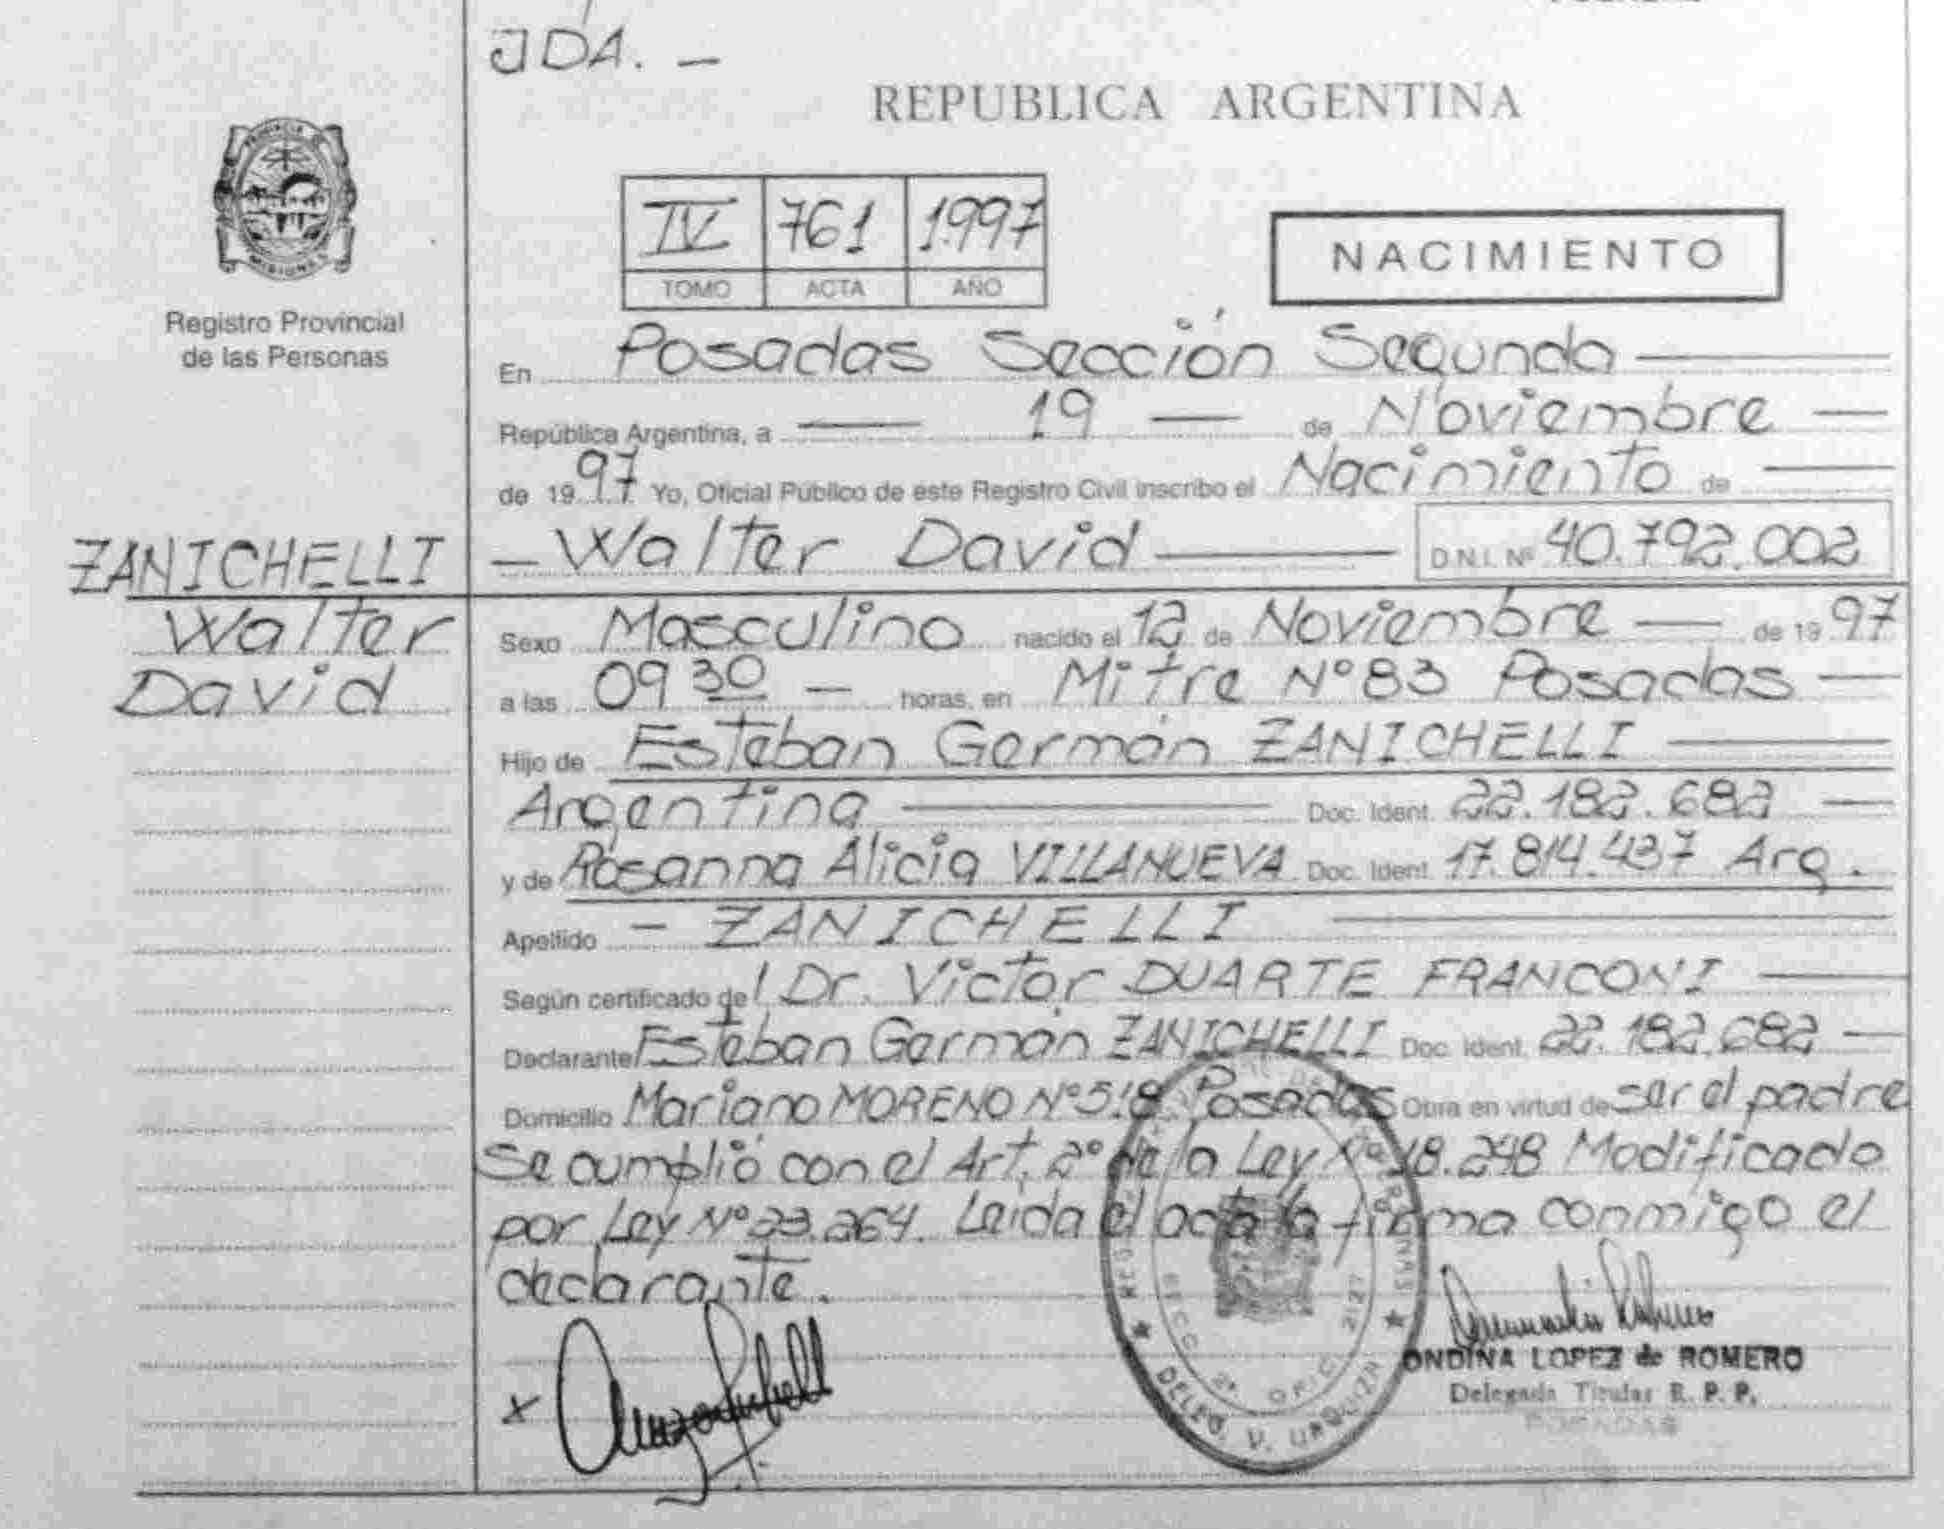 JDA. —
REPUBLICA ARGENTINA
PROVINCIA DE MISIONES
IV 761 1997
TOMO ACTA AÑO
NACIMIENTO
Registro Provincial
de las Personas
En Posadas Sección Segunda
República Argentina, a — 19 — de Noviembre —
de 1997 Yo, Oficial Público de este Registro Civil inscribo el Nacimiento de —
— Walter David — D.N.I. Nº 40.792.002
ZANICHELLI
Walter
David
Sexo Masculino nacido el 12 de Noviembre — de 1997
a las 09 30 — horas, en Mitre Nº 83 Posadas —
Hijo de Esteban Germán ZANICHELLI —
Argentina — Doc. Ident. 22.182.682 —
y de Rosanna Alicia VILLANUEVA Doc. Ident. 17.814.437 Arg.
Apellido — ZANICHELLI —
Según certificado de l Dr. Victor DUARTE FRANCONI —
Declarante Esteban Germán ZANICHELLI Doc. Ident. 22.182.682 —
Domicilio Mariano MORENO Nº 518 Posadas Obra en virtud de ser el padre
Se cumplió con el Art. 2º de la Ley Nº 18.248 Modificado
por Ley Nº 23.264. Leida el acta la firma conmigo el
declarante.
x
SECC. 2ª OFIC. 2127
DELEG. V. URQUIZA
ONDINA LOPEZ de ROMERO
Delegada Titular R. P. P.
POSADAS